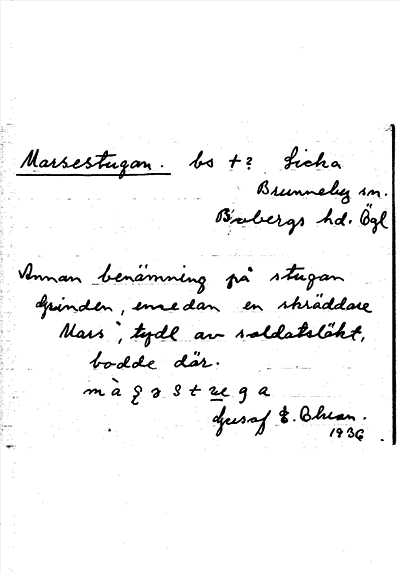 Marsestugan. bs +? Licka
Brunneby sn.
Bobergs hd. Ögl
Annan benämning på stugan
Grinden, emedan en skräddare
Mars, tydl av soldatsläkt,
bodde där.
Gustaf E. Bhuan.
1936